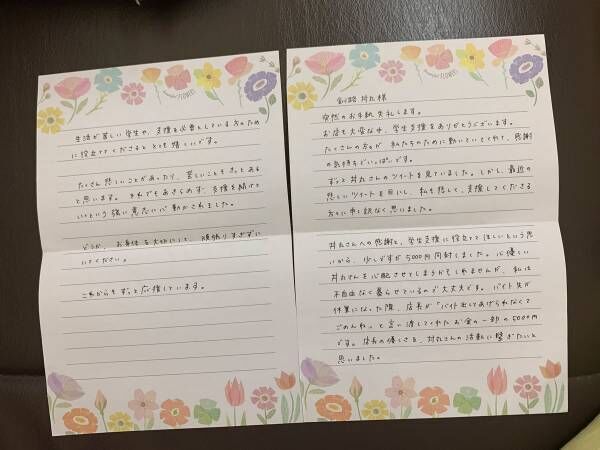 釧路 丼丸様
突然のお手紙失礼します。
お店も大変な中、学生支援をありがとうございます。
たくさんの方々が 私たちのために動いていてくれて、感謝
の気持ちでいっぱいです。
ずっと丼丸さんのツイートを見ていました。しかし、最近の
悲しいツイートを目にし、私も悲しく、支援してくださる
方々に申し訳なく思いました。
丼丸さんへの感謝と、学生支援に役立ててほしいという思
いから、少しですが5000円同封しました。心優しい
丼丸さんを心配させてしまうかもしれませんが、私は
不自由なく暮らせているので大丈夫です。バイト先が
休業になった際、店長が「バイト出してあげられなくて
ごめんね」と言い渡してくれたお金の一部の5000円
です。店長の優しさを、丼丸さんの活動に繋ぎたいと
思いました。
生活が苦しい学生や、支援を必要としている方のため
に役立ててくださると とても嬉しいです。
たくさん悲しいことがあったり、苦しいこともきっとある
と思います。それでもあきらめず、支援を続けて
いくという強い意志に心動かされました。
どうか、お身体を大切にして、頑張りすぎずに
いてください。
これからもずっと応援しています。